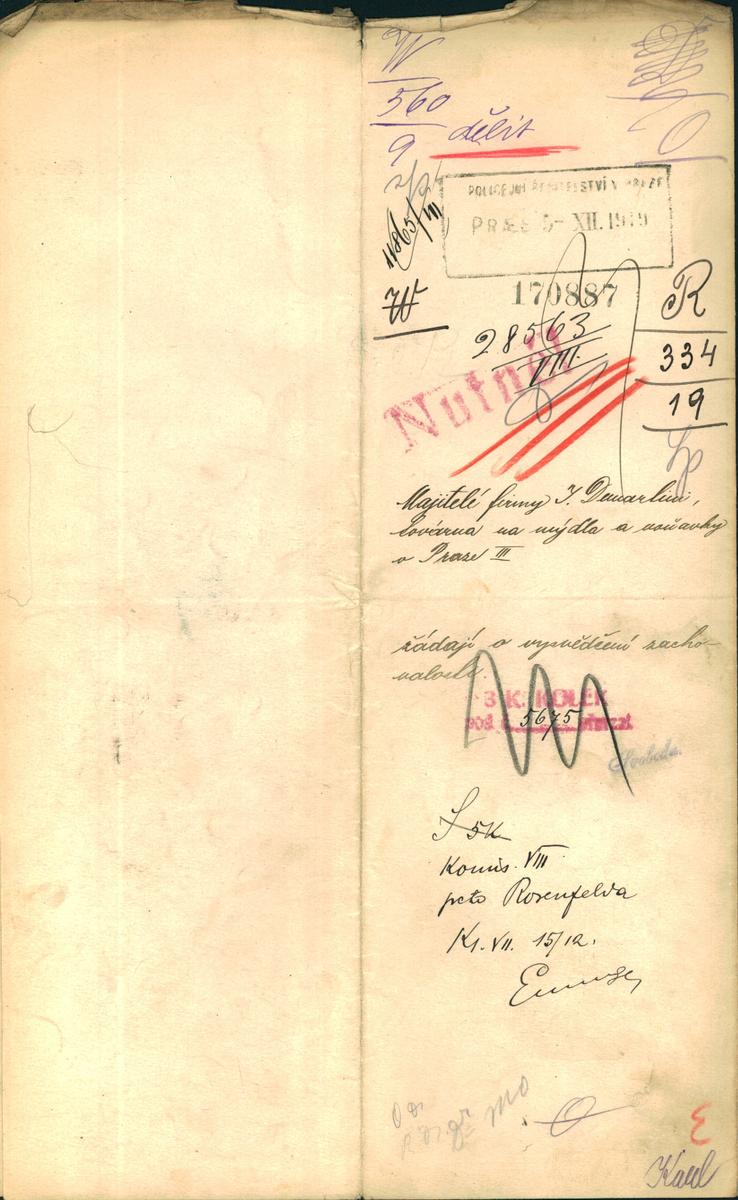 W
560
9
dělit
O
11865/III
W
POLICEJNÍ ŘEDITELSTVÍ V PRAZE
PRAES 5- XII. 1919
170887
28563
VIII.
Nutné!
R
334
19
Majitelé firmy I. Demartini,
továrna na mýdla a voňavky
v Praze III
žádají o vysvědčení zacho-
valosti.
3 K. KOLEK
pod č. 5675
Svoboda.
5K
Komis. VIII
pcto Rosenfelda
K1. VII. 15/12.